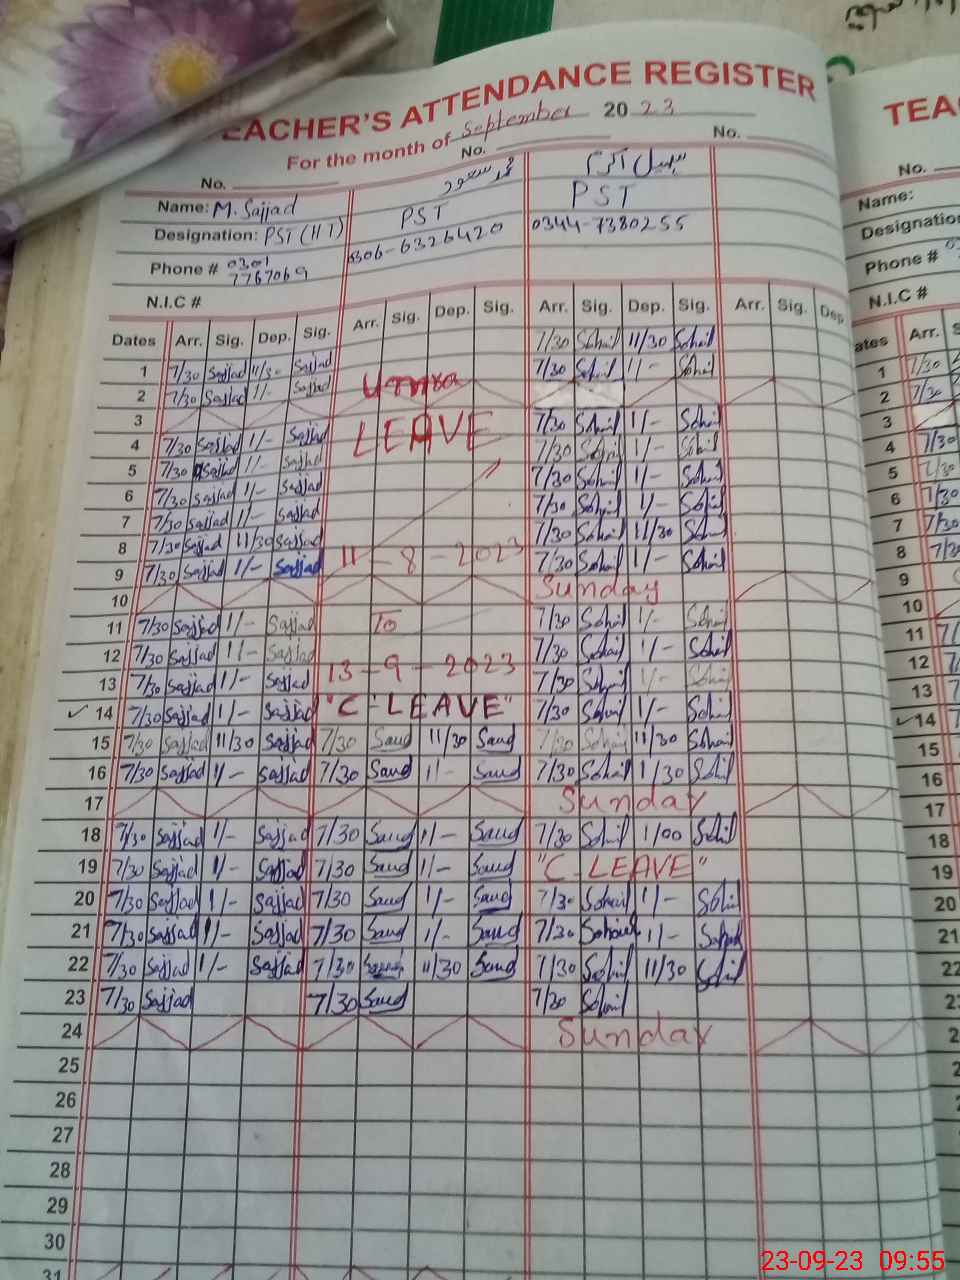 EACHER'S ATTENDANCE REGISTER
For the month of September 2023
No. No. No.
Name: M. Sajjad محمد سعود سہیل اکرم
Designation: PST (HT) PST PST
Phone # 0301 7767069 0306-6326420 0344-7380255
N.I.C #
Dates Arr. Sig. Dep. Sig. Arr. Sig. Dep. Sig. Arr. Sig. Dep. Sig. Arr. Sig. Dep
1 7/30 Sajjad 11/30 Sajjad 7/30 Sohail 11/30 Sohail
2 7/30 Sajjad 1/- Sajjad Umra 7/30 Sohail 1/- Sohail
3
4 7/30 Sajjad 1/- Sajjad LEAVE 7/30 Sohail 1/- Sohail
5 7/30 Sajjad 1/- Sajjad 7/30 Sohail 1/- Sohail
6 7/30 Sajjad 1/- Sajjad 7/30 Sohail 1/- Sohail
7 7/30 Sajjad 1/- Sajjad 7/30 Sohail 1/- Sohail
8 7/30 Sajjad 11/30 Sajjad 7/30 Sohail 11/30 Sohail
9 7/30 Sajjad 1/- Sajjad 11-8-2023 7/30 Sohail 1/- Sohail
10 Sunday
11 7/30 Sajjad 1/- Sajjad To 7/30 Sohail 1/- Sohail
12 7/30 Sajjad 1/- Sajjad 7/30 Sohail 1/- Sohail
13 7/30 Sajjad 1/- Sajjad 13-9-2023 7/30 Sohail 1/- Sohail
14 7/30 Sajjad 1/- Sajjad "C-LEAVE" 7/30 Sohail 1/- Sohail
15 7/30 Sajjad 11/30 Sajjad 7/30 Saud 11/30 Saud 7/30 Sohail 11/30 Sohail
16 7/30 Sajjad 1/- Sajjad 7/30 Saud 1/- Saud 7/30 Sohail 1/30 Sohail
17 Sunday
18 7/30 Sajjad 1/- Sajjad 7/30 Saud 1/- Saud 7/30 Sohail 1/00 Sohail
19 7/30 Sajjad 1/- Sajjad 7/30 Saud 1/- Saud "C-LEAVE"
20 7/30 Sajjad 1/- Sajjad 7/30 Saud 1/- Saud 7/30 Sohail 1/- Sohail
21 7/30 Sajjad 1/- Sajjad 7/30 Saud 1/- Saud 7/30 Sohail 1/- Sohail
22 7/30 Sajjad 1/- Sajjad 7/30 Saud 11/30 Saud 7/30 Sohail 11/30 Sohail
23 7/30 Sajjad 7/30 Saud 7/30 Sohail
24 Sunday
25
26
27
28
29
30
31
TEA
No.
Name:
Designatio
Phone #
N.I.C #
ates Arr. S
1 7/30
2 7/30
3
4 7/30
5 7/30
6 7/30
7 7/30
8 7/30
9
10
11
12
13
14
15
16
17
18
19
20
21
22
23-09-23 09:55